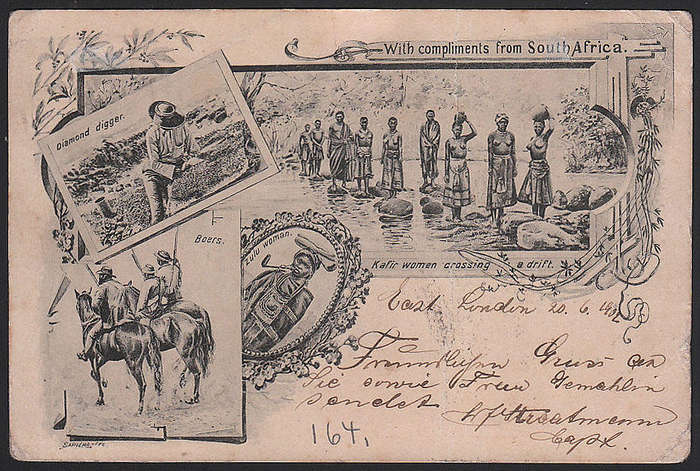 With compliments from South Africa.
Diamond digger.
Boers.
Zulu woman.
Kafir women crossing a drift.
East London 20. 6.
Freundlichen Gruss an
Sie sowie Frau Gemahlin
sendet
Capt.
164.